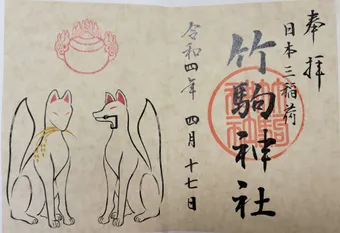 奉拝
日本三稲荷
竹駒神社
令和四年 四月 十七日